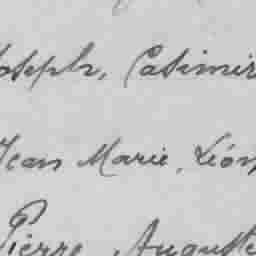 Joseph, Casimir
Jean Marie, Léon
Pierre, Auguste